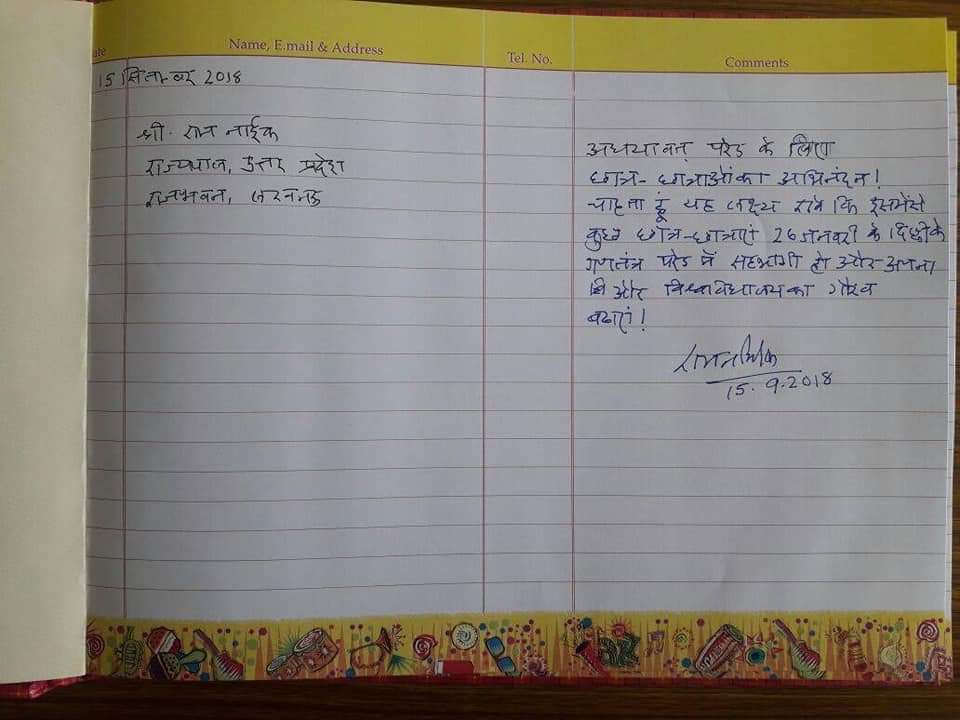 ate
Name, E.mail & Address
Tel. No.
Comments
15 सितम्बर 2018
श्री. राम नाईक
राज्यपाल, उत्तर प्रदेश
राजभवन, लखनऊ
परेड के लिए
छात्र-छात्राओंका अभिनंदन!
चाहता हूं यह लक्ष्य रखे कि इसमेंसे
कुछ छात्र-छात्राएं 26 जनवरी के दिल्लीके
गणतंत्र परेड में सहभागी हो और अपना
और विश्वविद्यालयका गौरव
बढाएं!
राम नाईक
15.9.2018